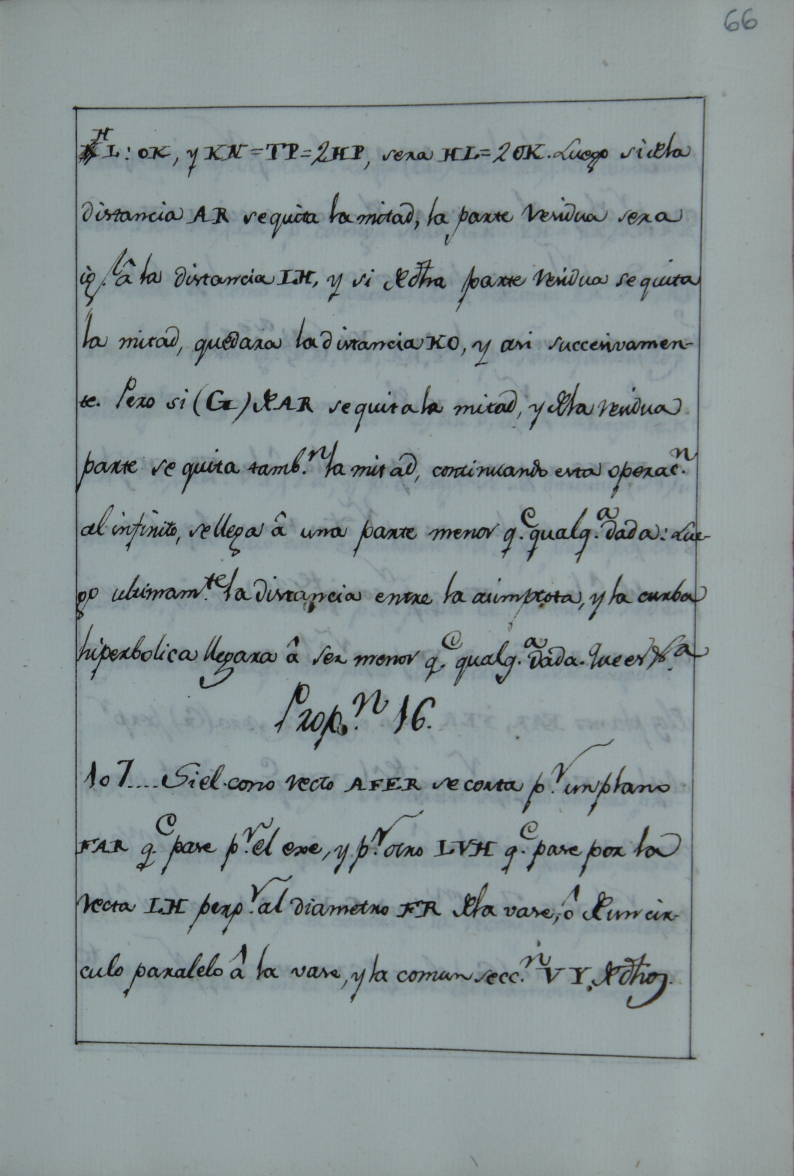 66
HL: OK, y KN=TP=2HP, sera HL=2OK. Luego si dela
distancia AR se quita la mitad, la parte residua sera
ig.l â la distancia IH, y si de dha parte residua se quita
la mitad, quedara la distancia KO, y asi succesivamen-
te. Pero si (G) de AR se quita la mitad, y dela residua
parte se quita tamb.n la mitad, continuando esta operac.n
al infinito, se llega â una parte menor q.e qualq.a dada: Lue-
go ultimam.te la distancia entre la asimptota, y la curba
hiperbolica llegara â ser menor q.e qualq.a dada. Que es
Prop.n 16.
107.... Si el cono recto AFER se corta p.r un plano
FAR q.e pase p.r el exe, y p.r otro LVH q.e pase por la
recta IH perp.r al diametro FR dela vase, ô de un cir-
culo paralelo â la vase, y la comun secc.n VY, de dhos